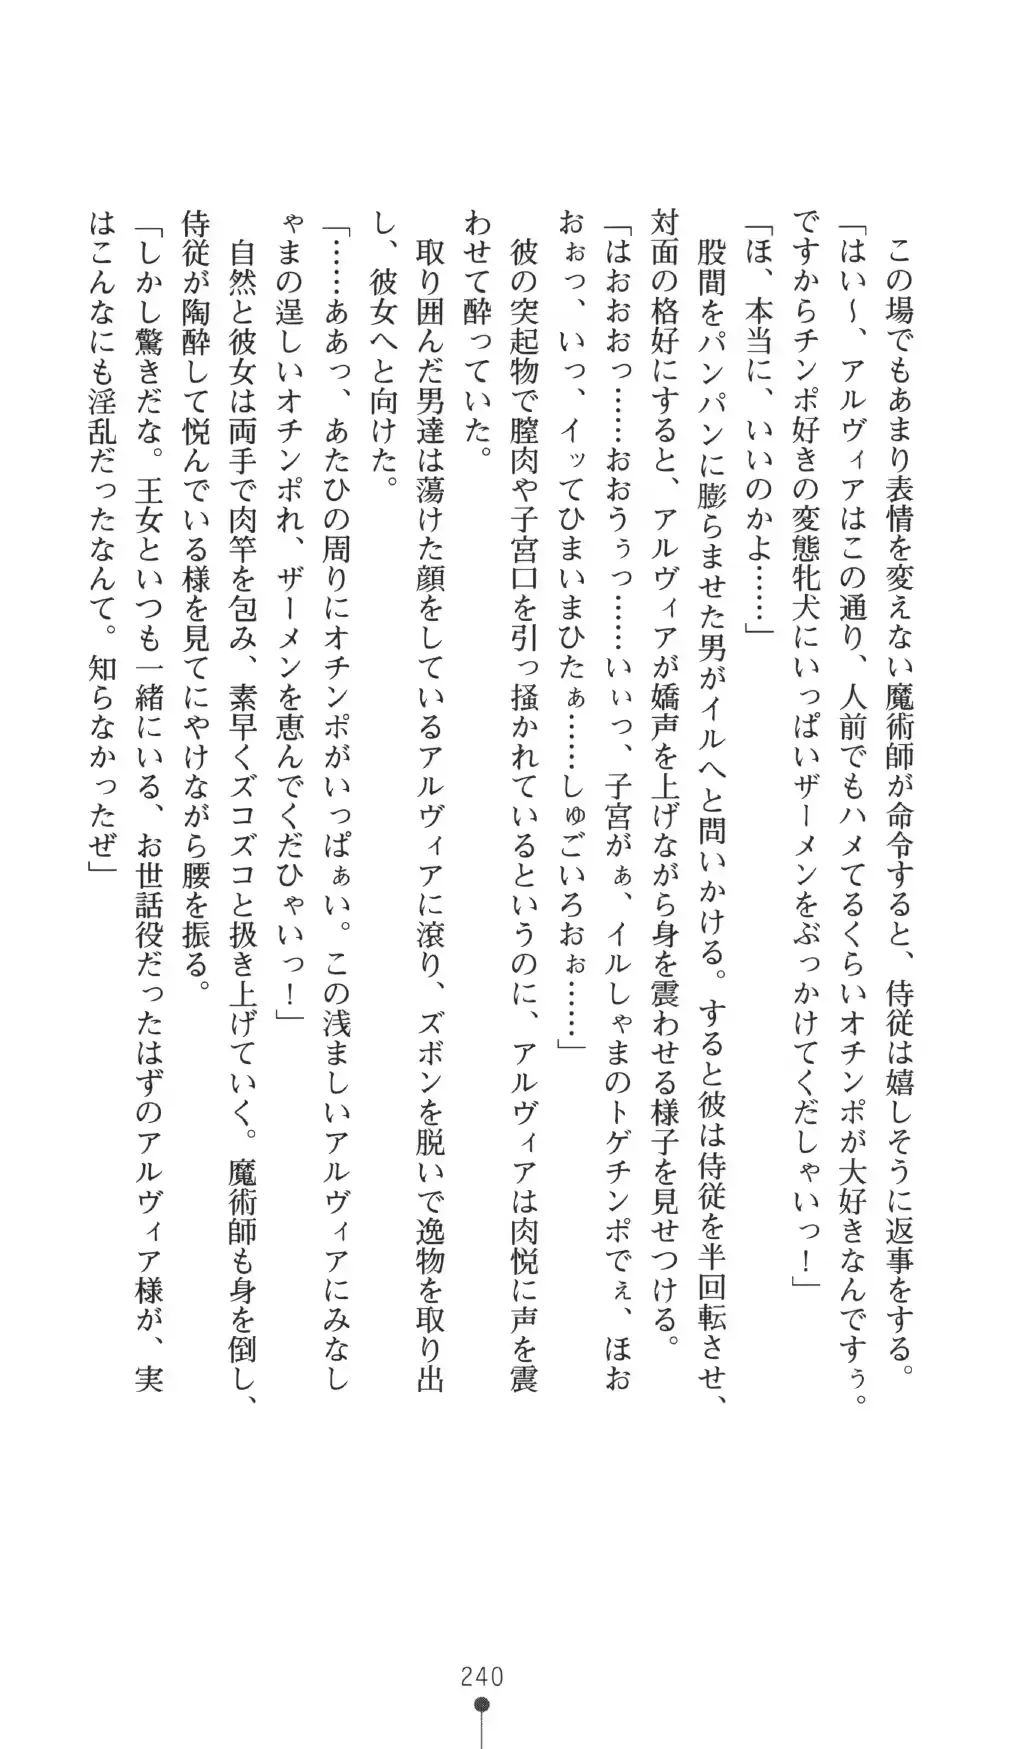 この場でもあまり表情を変えない魔術師が命令すると、侍従は嬉しそうに返事をする。
「はい～、アルヴィアはこの通り、人前でもハメてるくらいオチンポが大好きなんですぅ。
ですからチンポ好きの変態牝犬にいっぱいザーメンをぶっかけてくだしゃいっ！」
「ほ、本当に、いいのかよ……」
股間をパンパンに膨らませた男がイルへと問いかける。すると彼は侍従を半回転させ、
対面の格好にすると、アルヴィアが嬌声を上げながら身を震わせる様子を見せつける。
「はおおおっ……おおうぅっ……いぃっ、子宮がぁ、イルしゃまのトゲチンポでぇ、ほお
おぉっ、いっ、イッてひまいまひたぁ……しゅごいろおぉ……」
彼の突起物で膣肉や子宮口を引っ掻かれているというのに、アルヴィアは肉悦に声を震
わせて酔っていた。
取り囲んだ男達は蕩けた顔をしているアルヴィアに滾り、ズボンを脱いで逸物を取り出
し、彼女へと向けた。
「……ああっ、あたひの周りにオチンポがいっぱぁい。この浅ましいアルヴィアにみなし
ゃまの逞しいオチンポれ、ザーメンを恵んでくだひゃいっ！」
自然と彼女は両手で肉竿を包み、素早くズコズコと扱き上げていく。魔術師も身を倒し、
侍従が陶酔して悦んでいる様を見てにやけながら腰を振る。
「しかし驚きだな。王女といつも一緒にいる、お世話役だったはずのアルヴィア様が、実
はこんなにも淫乱だったなんて。知らなかったぜ」
240